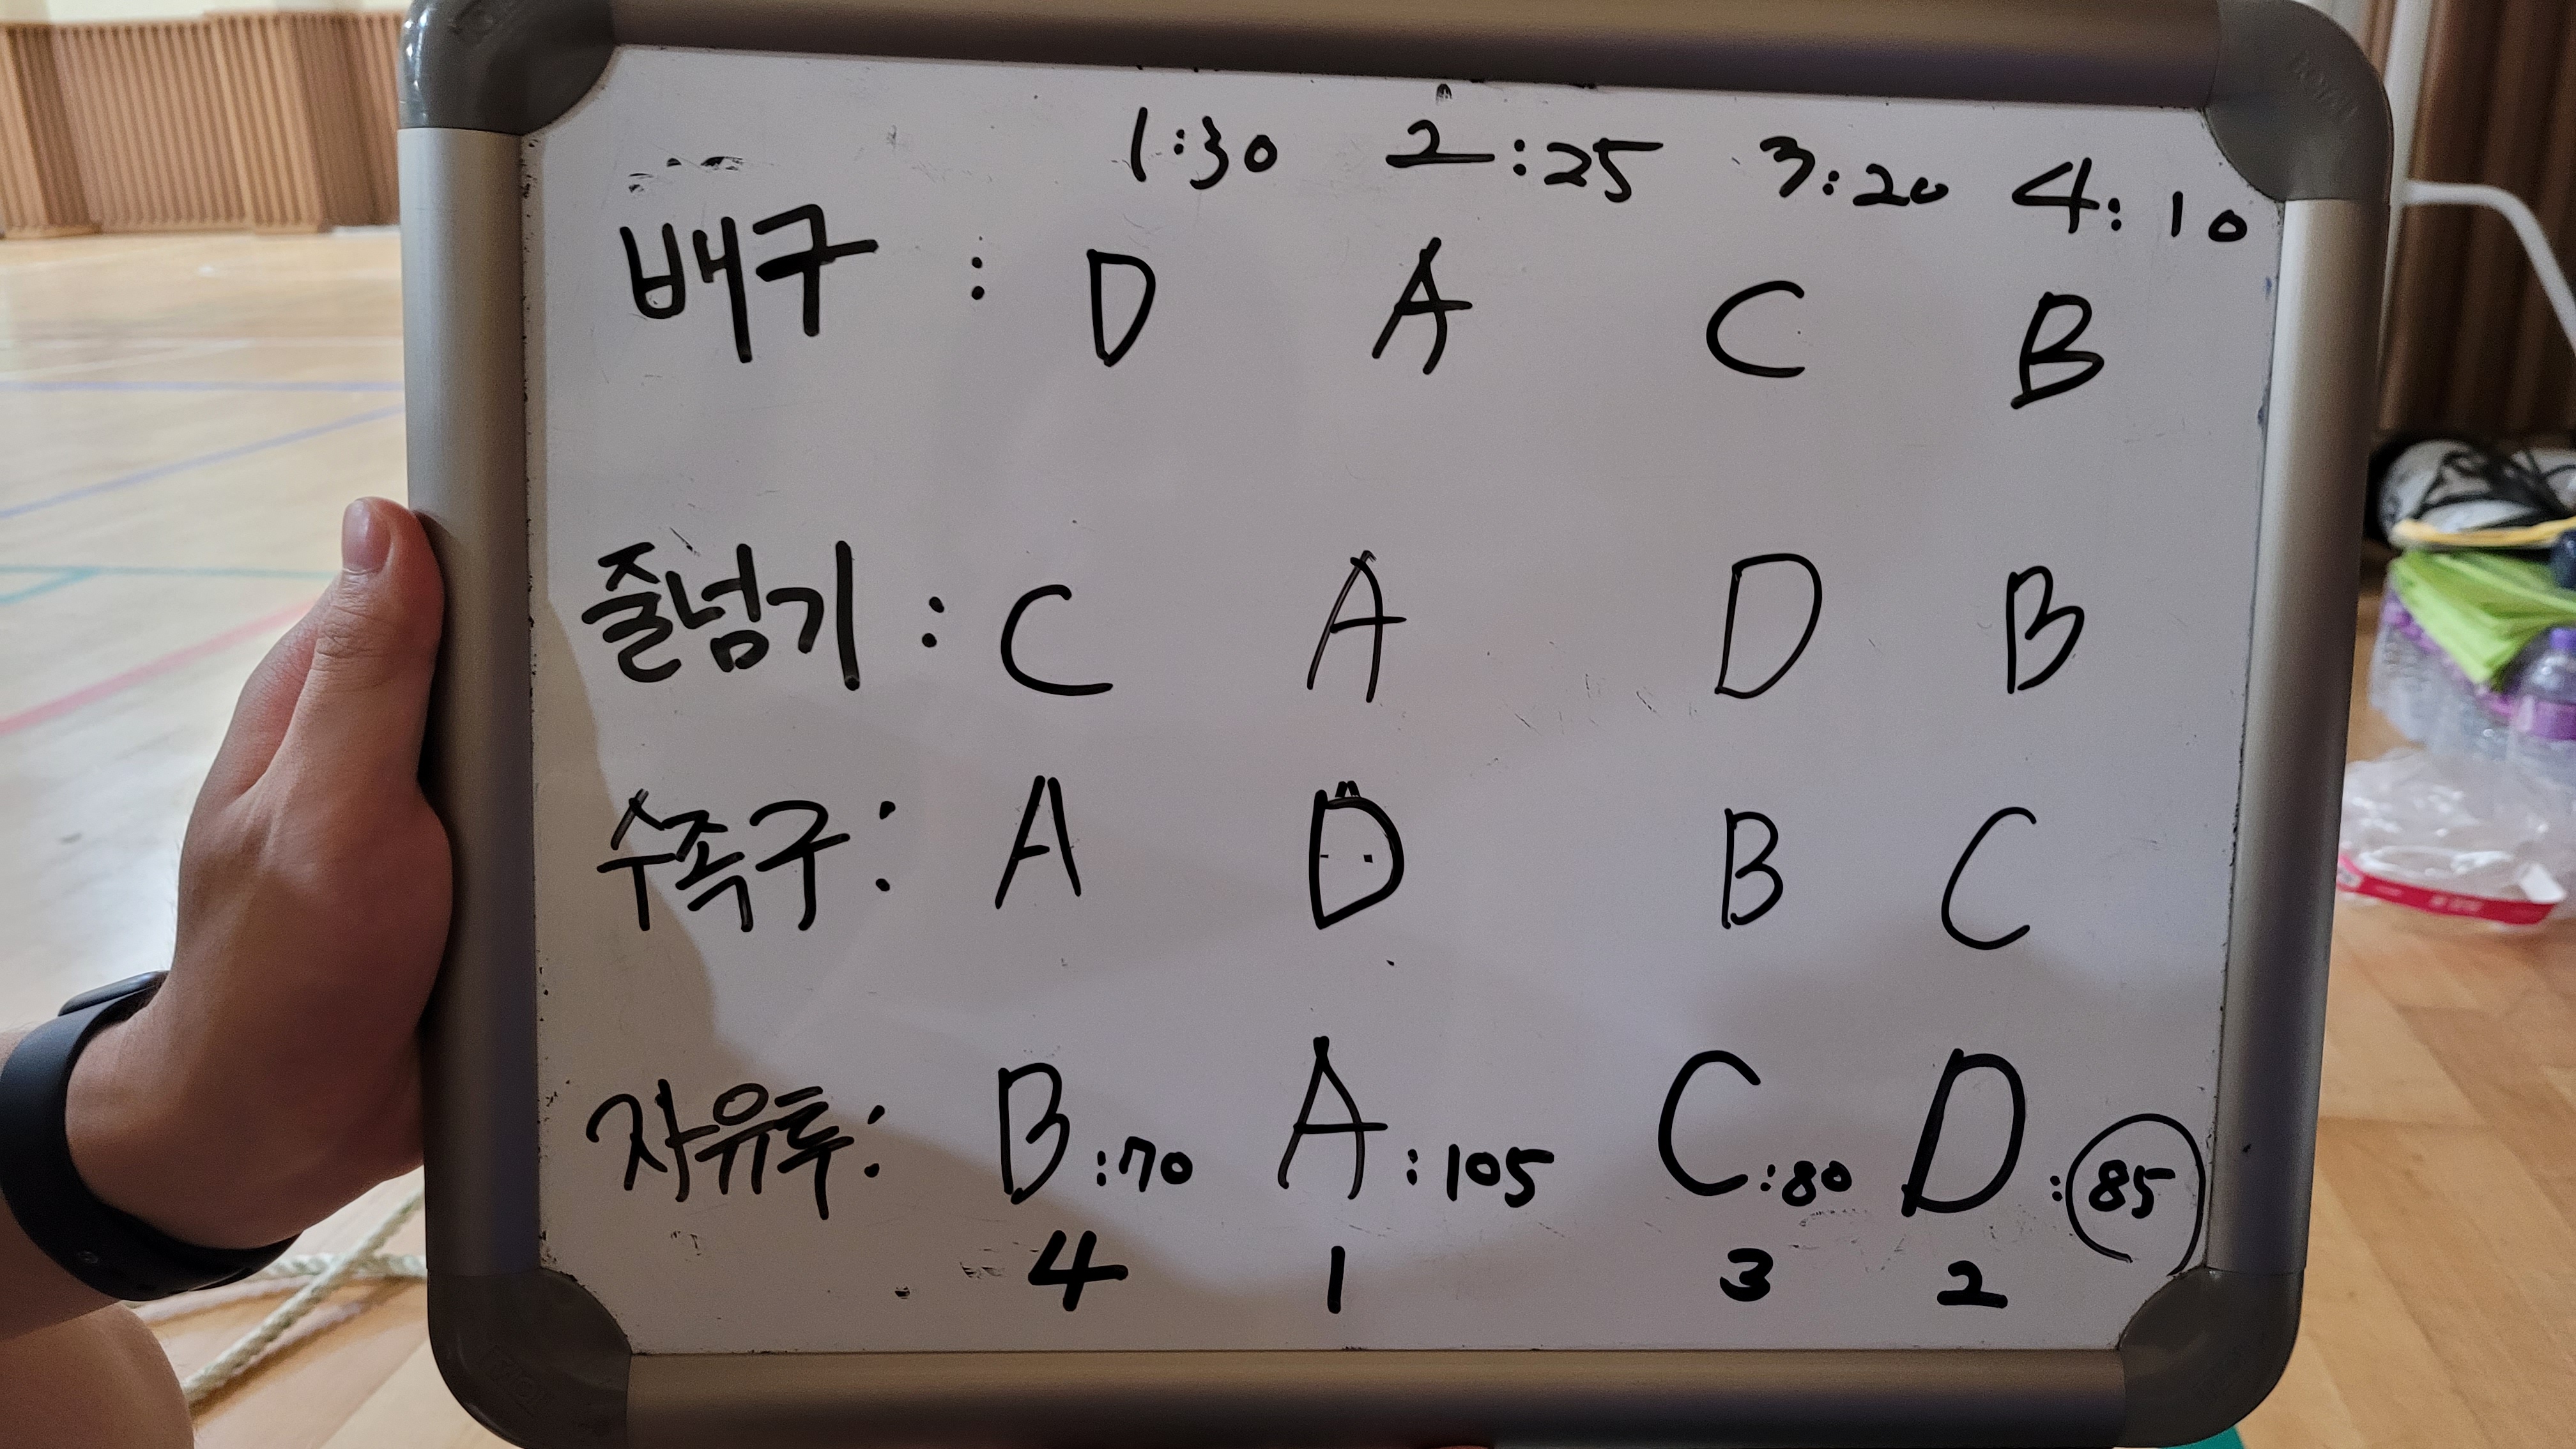 1:30 2:25 3:20 4:10
배구 : D A C B
줄넘기 : C A D B
수족구 : A D B C
자유투 : B:70 A:105 C:80 D:85
4 1 3 2